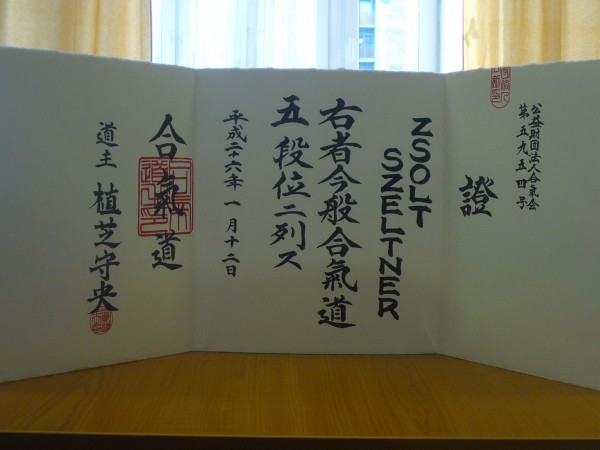 公益財団法人合氣会
第五九五四号
證
ZSOLT
SZELTNER
右者今般合氣道
五段位ニ列ス
平成二十六年一月十二日
合氣道
道主 植芝守央